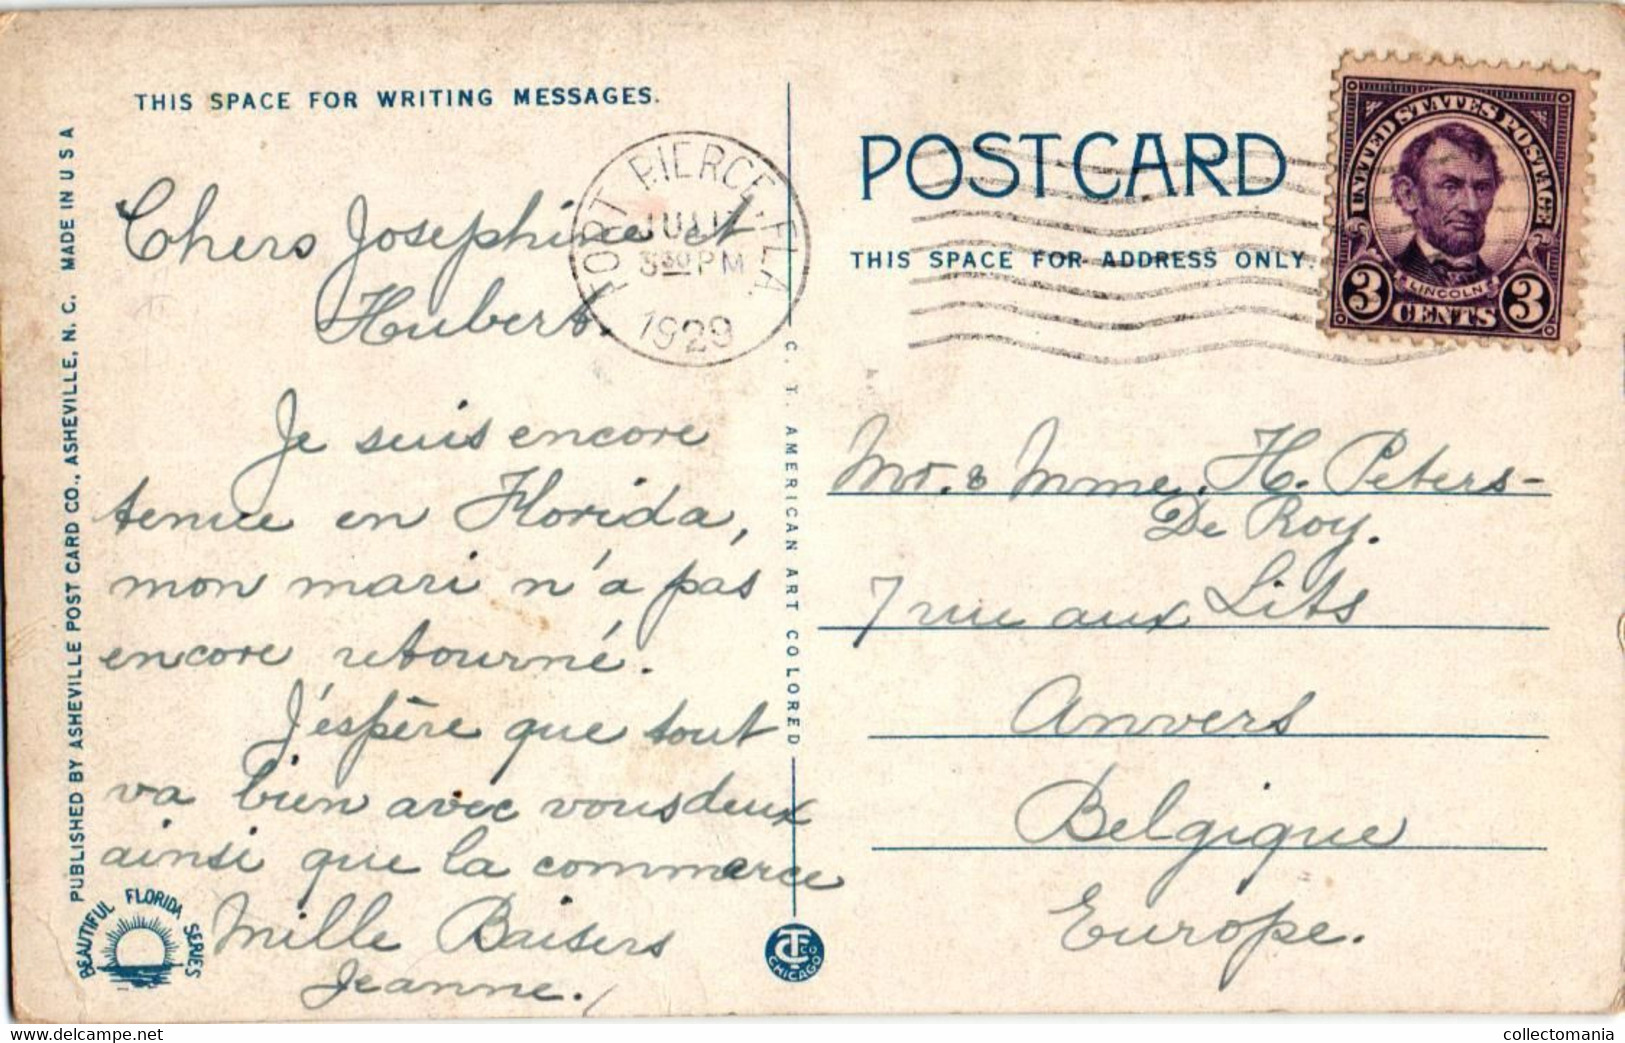 THIS SPACE FOR WRITING MESSAGES.
Chers Josephine et
Hubert.
Je suis encore
tenue en Florida,
mon mari n'a pas
encore retourné.
J'espère que tout
va bien avec vous deux
ainsi que la commerce
Mille Baisers
Jeanne.
PUBLISHED BY ASHEVILLE POST CARD CO., ASHEVILLE, N. C. MADE IN U S A
BEAUTIFUL FLORIDA SERIES
FORT PIERCE, FLA.
3 30 PM
1929
C. T. AMERICAN ART COLORED
C T CO
CHICAGO
POST CARD
THIS SPACE FOR ADDRESS ONLY.
UNITED STATES POSTAGE
LINCOLN
3 CENTS 3
Mr. & Mme. H. Peters-
De Roy.
7 rue aux Lits
Anvers
Belgique
Europe.
www.delcampe.net
collectomania